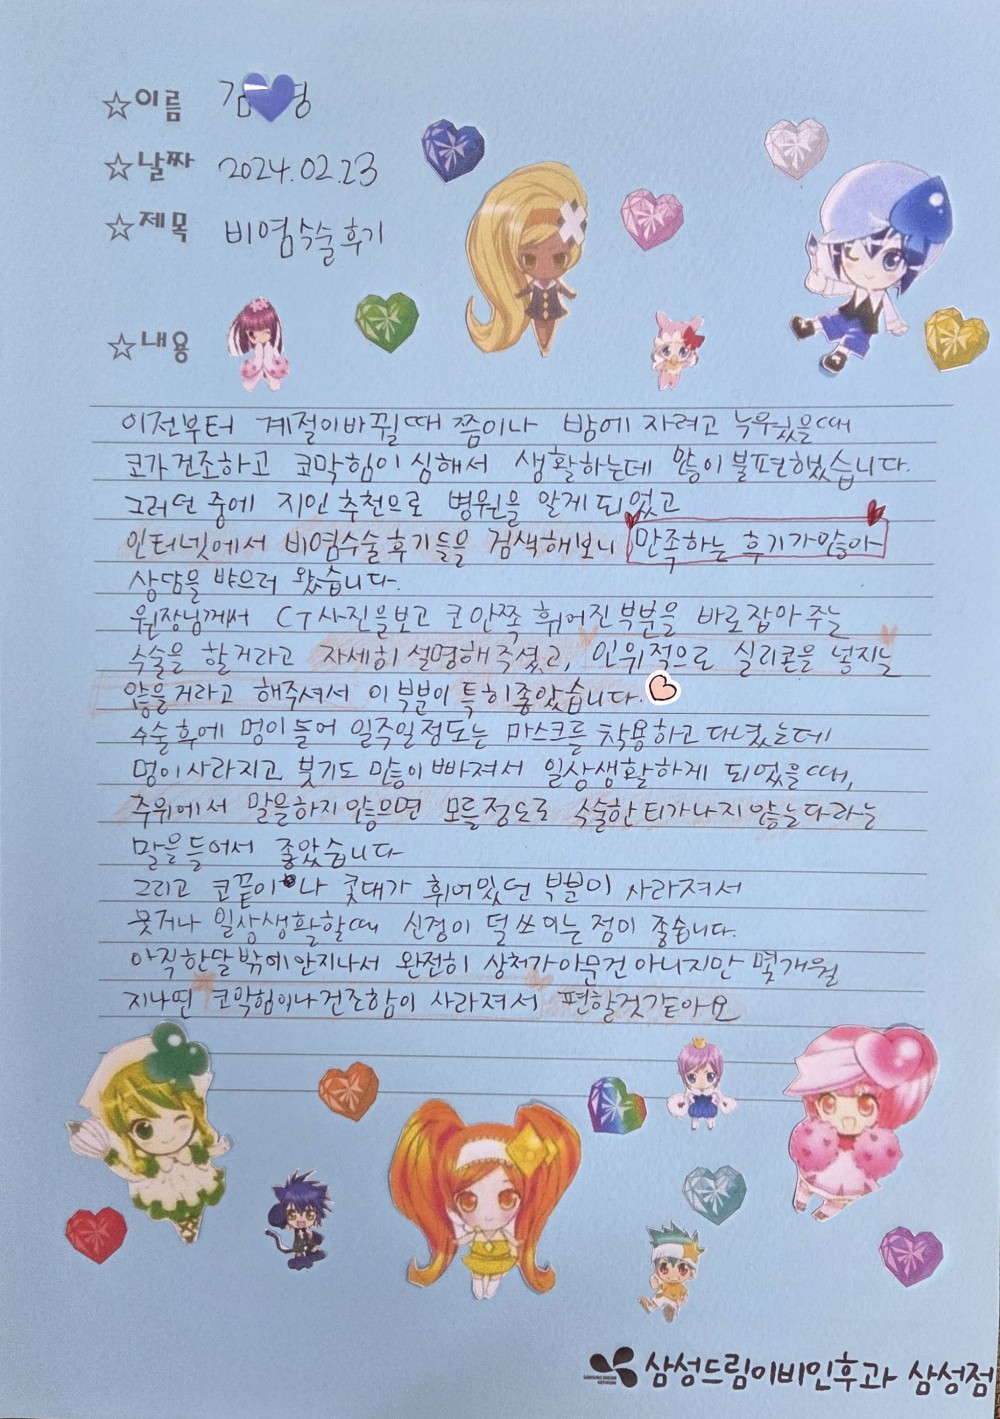 ☆이름 김 영
☆날짜 2024.02.23
☆제목 비염수술후기
☆내용
이전부터 계절이바뀔때 쯤이나 밤에 자려고 누워있을때
코가건조하고 코막힘이 심해서 생활하는데 많이불편했습니다.
그러던 중에 지인 추천으로 병원을 알게되었고
인터넷에서 비염수술후기들을 검색해보니 만족하는 후기가많아
상담을 받으러 왔습니다.
원장님께서 CT사진을보고 코안쪽 휘어진부분을 바로잡아주는
수술을 할거라고 자세히설명해주셨고, 인위적으로 실리콘을 넣지는
않을거라고 해주셔서 이부분이 특히좋았습니다.
수술후에 멍이들어 일주일정도는 마스크를 착용하고다녔는데
멍이사라지고 붓기도 많이 빠져서 일상생활하게 되었을때,
주위에서 말을하지않으면 모를정도로 수술한티가나지않는다라는
말을들어서 좋았습니다
그리고 코끝이나 콧대가 휘어있던 부분이 사라져서
웃거나 일상생활할때 신경이 덜쓰이는 점이 좋습니다.
아직한달밖에안지나서 완전히 상처가아문건 아니지만 몇개월
지나면 코막힘이나건조함이 사라져서 편할것같아요
SAMSUNG DREAM NETWORK 삼성드림이비인후과 삼성점